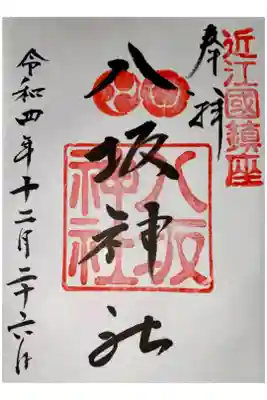 近江國鎮座
奉拝
八坂神社
八坂
神社
令和四年十二月二十六日